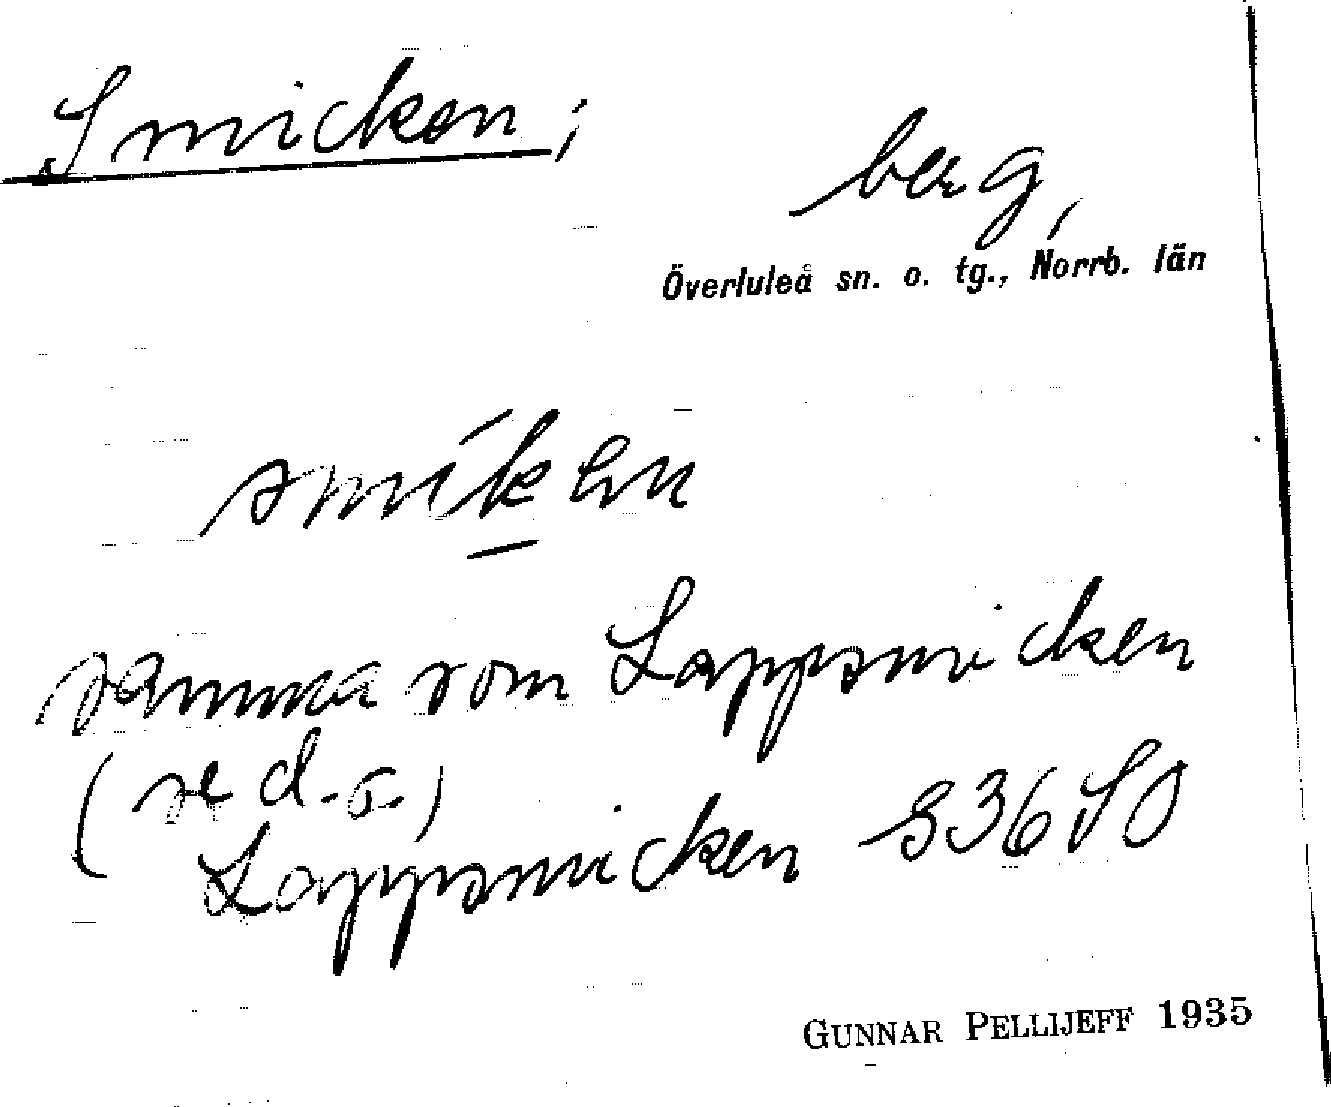 Smicken;
berg,
Överluleå sn. o. tg., Norrb. län
smíken
samma som Lappsmicken
(se d.o.)
Lappsmicken 836 SO
GUNNAR PELLIJEFF 1935